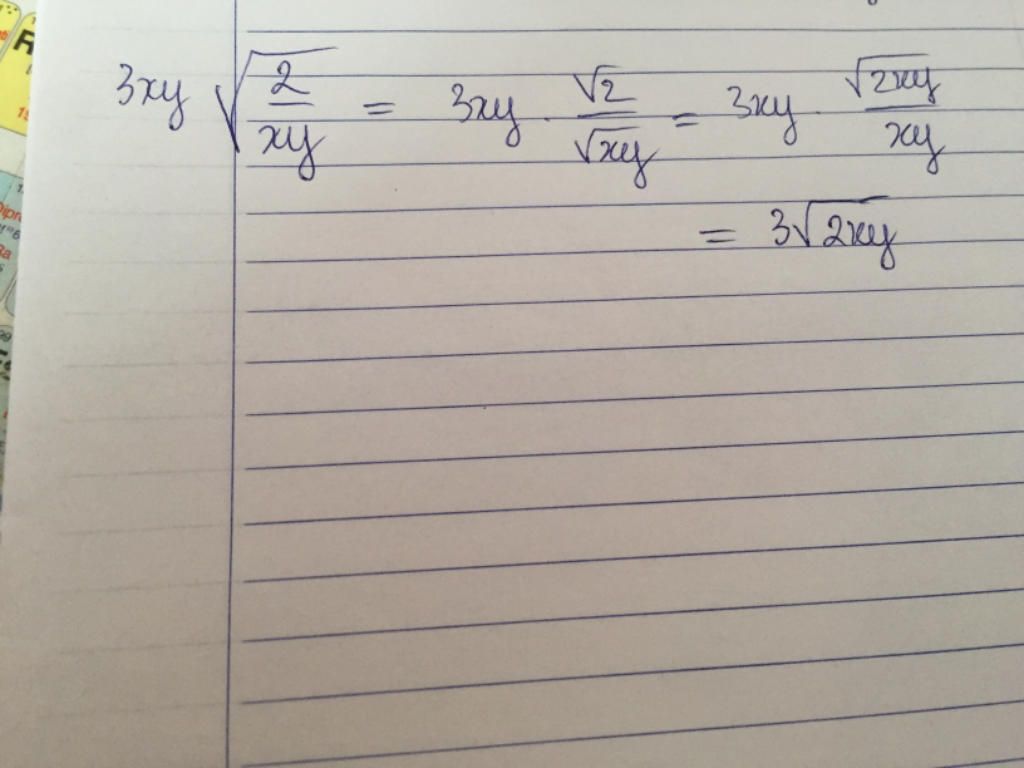 3xy √(2/xy) = 3xy · √2/√xy = 3xy · √2xy/xy
= 3√2xy